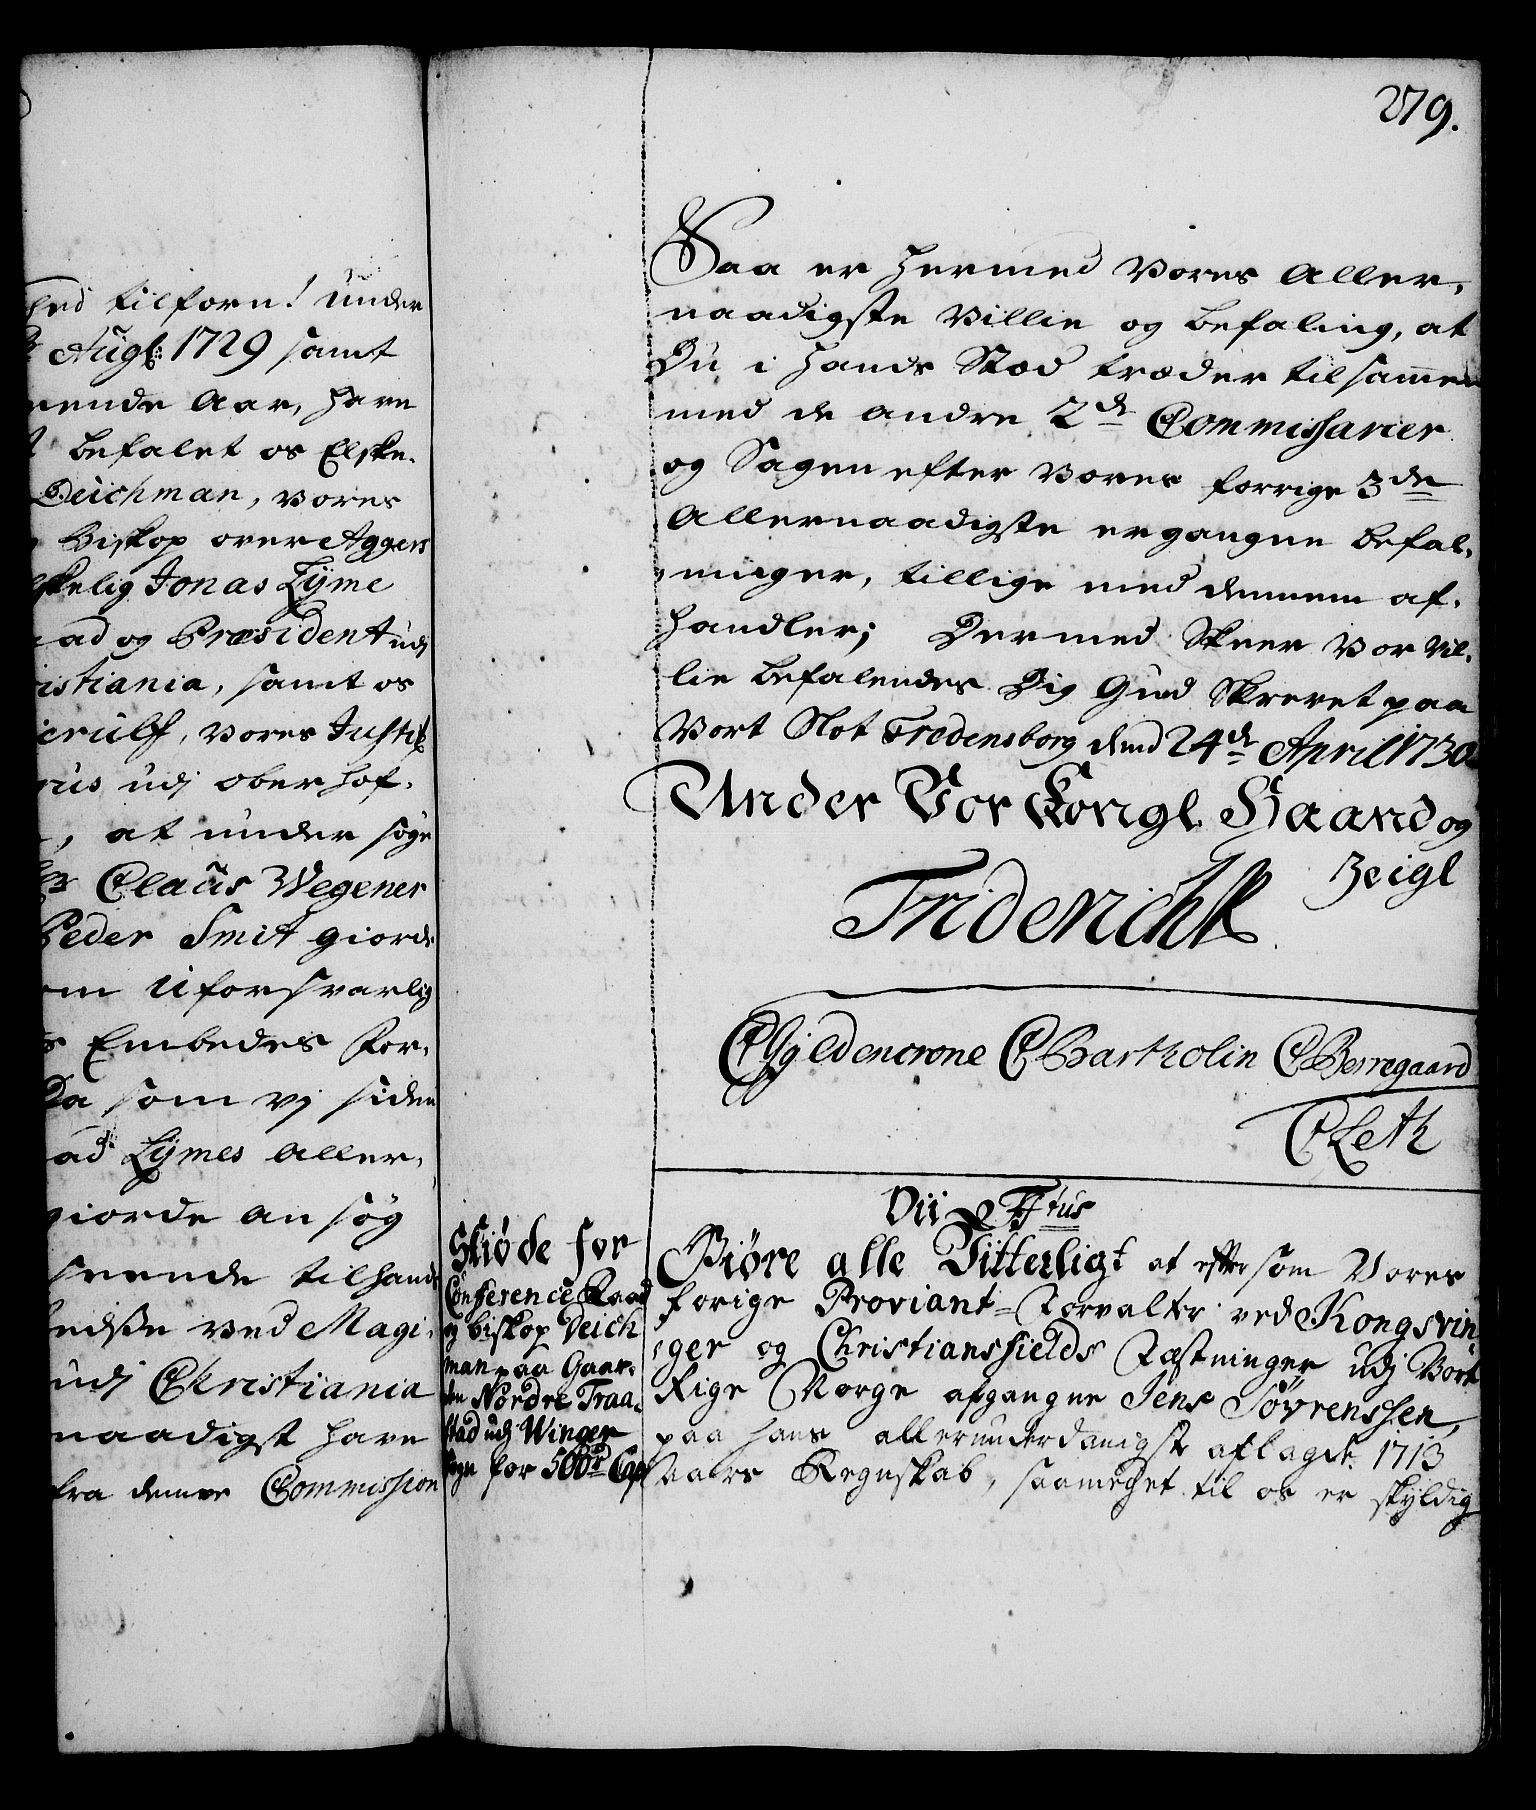 hed tilforn! under
Augs: 1729 samt
rende Aar, have
befalet os Elske.
Deichman, vores
Biskop over Aggers
skelig Jonas Lÿme
aad og Præsident udj
ristiania, samt os
ierulf, vores Justis
rus udj oberhof.
, at under søge
Claüs Wegener
Peder Smit giorde
om uforsvarlig
s Embedes For.
Da som vj siden
ad Lÿmes aller,
giorde an søg
seende til hands
ledsse ved Magi.
udj Christiania
naadigst have
fra denne Commission
279.
Saa er hermed Vores Aller,
naadigste Villie og befaling, at
Du i hands Stæd træder tilsammen
med de andre 2de Commissarier
og Sagen efter Vores forrige 3de
Allernaadigste ergangne befal,
ninger, tillige med dennem af.
handler; Dermed Skeer Vor Vil.
lie befalendes Dig Gud Skrevet paa
Vort Slot Fredensborg dend 24de April 1730.
Under Vor Kongl. Haand og
Zeigl
Friderich R
C Gyldencrone C Bartholin C Berregaard
C Leth
Vii F 4tus
Skiøde for
Conference Raad
og biskop Deich
man paa Gaar.
den Nordre Traa.
stad udj Winger
sogn for 500rd Cap
Giøre alle Vitterligt at eftersom Vores
forige Proviant-Forvalter ved Kongsvin
ger og Christiansfields Fæstninger udj Vort
Rige Norge afgangne Jens Søfrenssen,
paa hans allerunderdanigste aflagde 1713
aars Regnskab, saameget til os er skÿldig